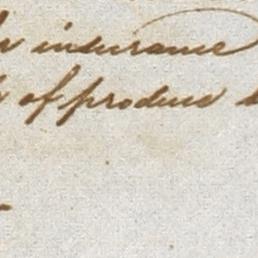 insurance
of produce